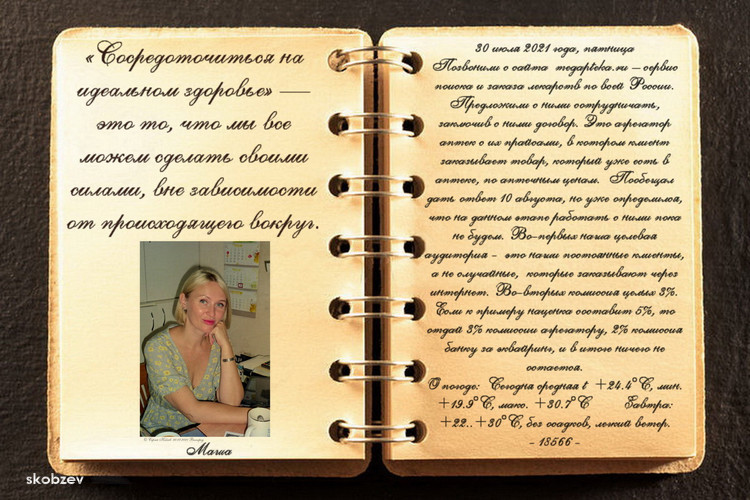 «Сосредоточиться на
идеальном здоровье» —
это то, что мы все
можем сделать своими
силами, вне зависимости
от происходящего вокруг.
Маша
30 июля 2021 года, пятница
Позвонили с сайта megapteka.ru – сервис
поиска и заказа лекарств по всей России.
Предложили с ними сотрудничать,
заключив с ними договор. Это агрегатор
аптек с их прайсами, в котором клиент
заказывает товар, который уже есть в
аптеке, по аптечным ценам. Пообещал
дать ответ 10 августа, но уже определился,
что на данном этапе работать с ними пока
не будем. Во-первых наша целевая
аудитория - это наши постоянные клиенты,
а не случайные, которые заказывают через
интернет. Во-вторых комиссия целых 3%.
Если к примеру наценка составит 5%, то
отдай 3% комиссии агрегатору, 2% комиссия
банку за эквайринг, и в итоге ничего не
остается.
О погоде: Сегодня средняя t +24.4°C, мин.
+19.9°C, макс. +30.7°C Завтра:
+22..+30°C, без осадков, легкий ветер.
- 18566 -
skobzev